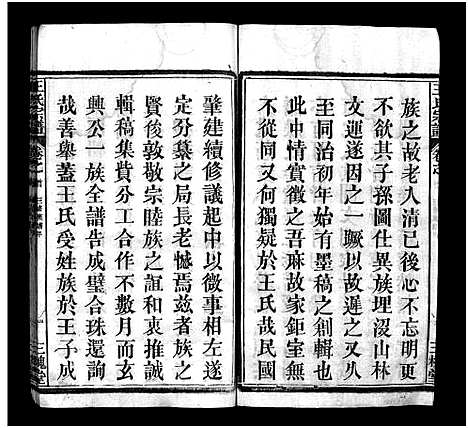 族之故老入清已後心不忘明更
不欲其子孫圖仕異族埋沒山林
文運遂因之一蹶以故遲之又久
至同治初年始有墨稿之創輯也
此中情實徵之吾麻故家鉅室鮮
不從同又何獨疑於王氏哉民國
肇建續修議起中以徵事相左遂
定分纂之局長老憾焉兹者族之
賢後敦敬宗睦族之誼和衷推誠
輯稿集貲分工合作不數月而彙
興公一族全譜告成璧合珠還詢
哉善舉蓋王氏受姓族於王子成
王氏宗譜
卷之首
三槐堂